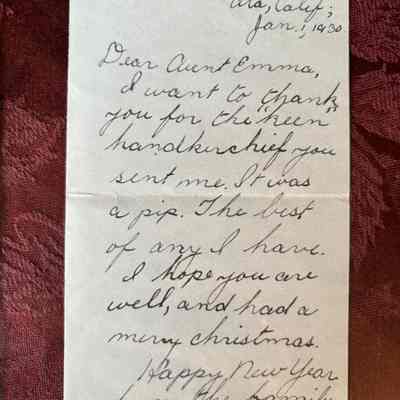 Calif;
Jan. 1, 1930.
Dear Aunt Emma,
I want to "thank"
you for the "keen
handkerchief you
sent me. It was
a pip. The best
of any I have.
I hope you are
well, and had a
merry christmas.
Happy New Year
the family